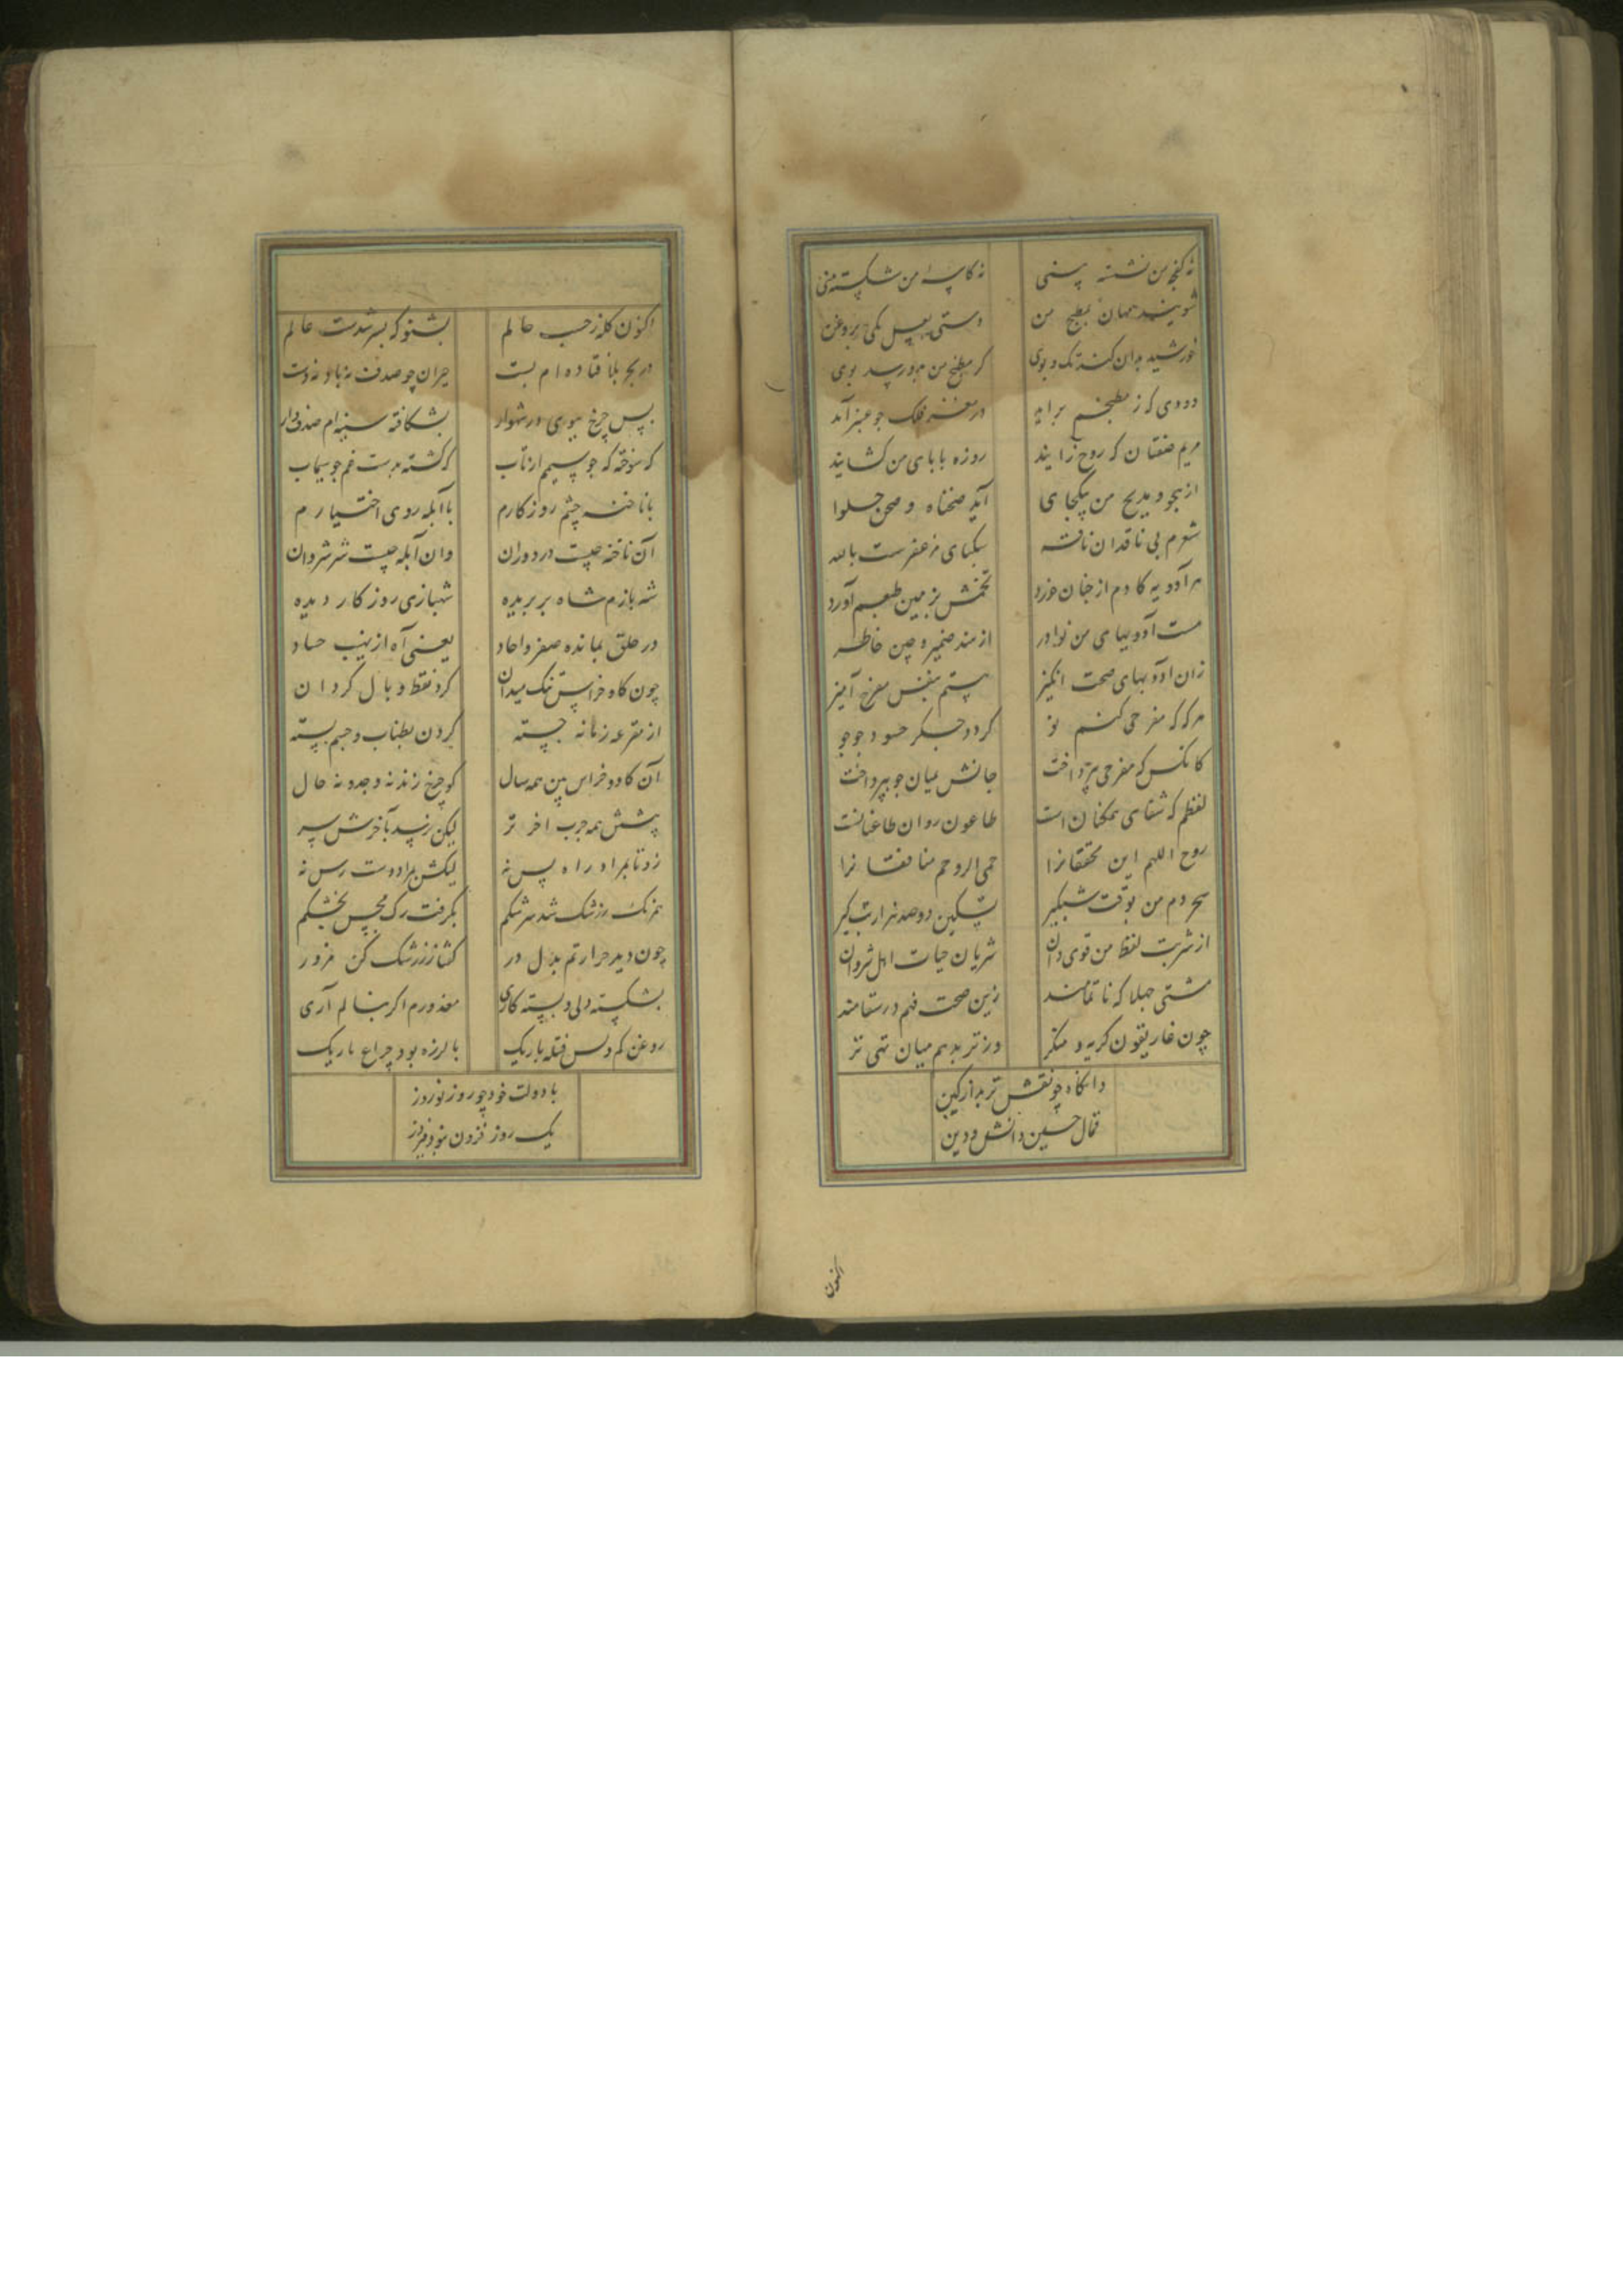 نه کفچه من نشسته پستی نه کاسه من شکسته منی
شویند مهمان مطبخ من دستی بعسل یکی بروغن
خورشید بدان کند تک و پوی کز مطبخ من بدو رسد بوی
دودی کز مطبخم براید در مغز فلک چو عنبر آید
مریم صفتان که روح زایند روزه بابای من کشایند
از هجو و مدیح من بیکجای آید صحناه و صحن حلوا
شعرم بی ناقدان سکبای مزعفرست بالله
هر آدویه کادم از جنان خورد تخمش بزمین طبعم آورد
هست آدویهای من نوادر از هند ضمیر و چین خاطر
زان ادویهای صحت انکیز هستم بنفس مفرح آمیز
هر که که مفرحی کنم نو کردد جگر حسود جو جو
کانکس که مفرحی بپرداخت جانش میان جو بپرداخت
لفظم که شفای ممکنان است طاعون روان طاعنانست
روح اللهم این محققانرا حمی الروحم منافقانرا
سحر دم من بوقت شبکیر تسکین دوصد هزار تب کیر
از شربت لفظ من قوی دان شریان حیات اهل شروان
مشتی جهلا که ناتمامند زین صحت فهم در سقامند
چون غاریقون کریه و منکر وز تربد هم میان تهی تر
وانکاه چو نقش تربد از کین
قتال حسین دانش و دین
اکنون
اکنون کله زحسب حالم بشنو که بسر شدست عالم
در بحر بلا فتاده ام بست حیران چو صدف نه پا و نه دست
پس چرخ ببوی در شهوار بشکافته سینه ام صدف وار
که سوخته که چو سیم از تاب که کشته بدست غم چو سیماب
با ناخنه چشم روزکارم با آبله روی اختیارم
آن ناخنه چیست در دوران وان آبله چیست شر شروان
شه بازم شاه بر بریده شهبازی روزکار دیده
در حلق بمانده صفر واحاد یعنی آه از نهیب حساد
چون کاو خراس تنک میدان کرد نقط وبال کردان
از مقرعه زمانه جسته کردن بطناب و چشم بسته
آن کاو و خراس بین همه سال کو چرخ زند نه وجد و نه حال
پیشش همه چرب آخر تر لیکن نرسد بآخرش سر
زو تا بمراد راه پس نه لیکش بمراد دست رس نه
همرنک زرشک شد سرشکم بکرفت رک مجس بخشکم
چون دید حرارتم بدل در کفتا ز زرشک کن مزور
بشکسته دلی و بسته کاری معذورم اکر بنالم آری
روغن کم و بس فتله باریک با لرزه بود چراغ تاریک
با دولت خود چو روز نوروز
یک روز فزون بنود فیروز